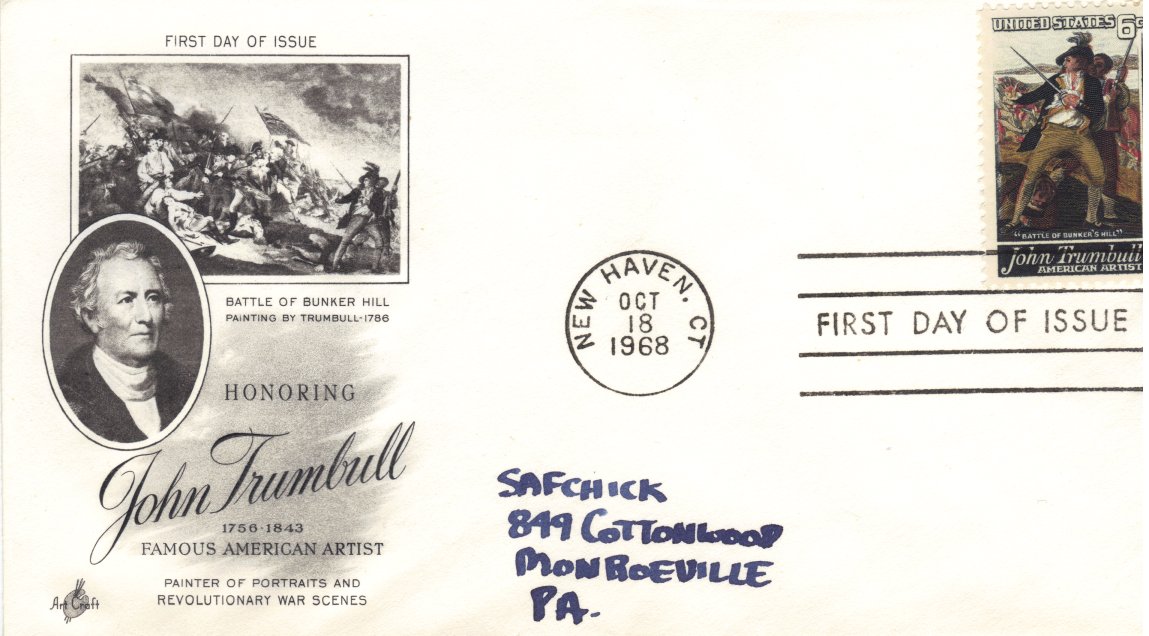 FIRST DAY OF ISSUE
BATTLE OF BUNKER HILL
PAINTING BY TRUMBULL-1786
HONORING
John Trumbull
1756-1843
FAMOUS AMERICAN ARTIST
PAINTER OF PORTRAITS AND
REVOLUTIONARY WAR SCENES
Art Craft
NEW HAVEN, CT
OCT
18
1968
UNITED STATES 6c
"BATTLE OF BUNKER'S HILL"
John Trumbull
AMERICAN ARTIST
FIRST DAY OF ISSUE
SAFCHICK
849 COTTONWOOD
MONROEVILLE
PA.